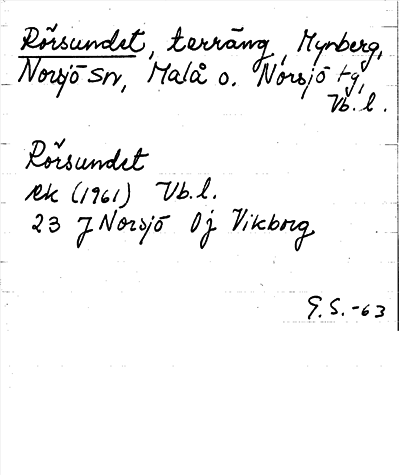 Rörsundet, terräng, Mynberg,
Norsjö sn, Malå o. Norsjö tg,
Vb. l.
Rörsundet
rek (1961) Vb. l.
23 J Norsjö 0j Vikborg
G. S. -63